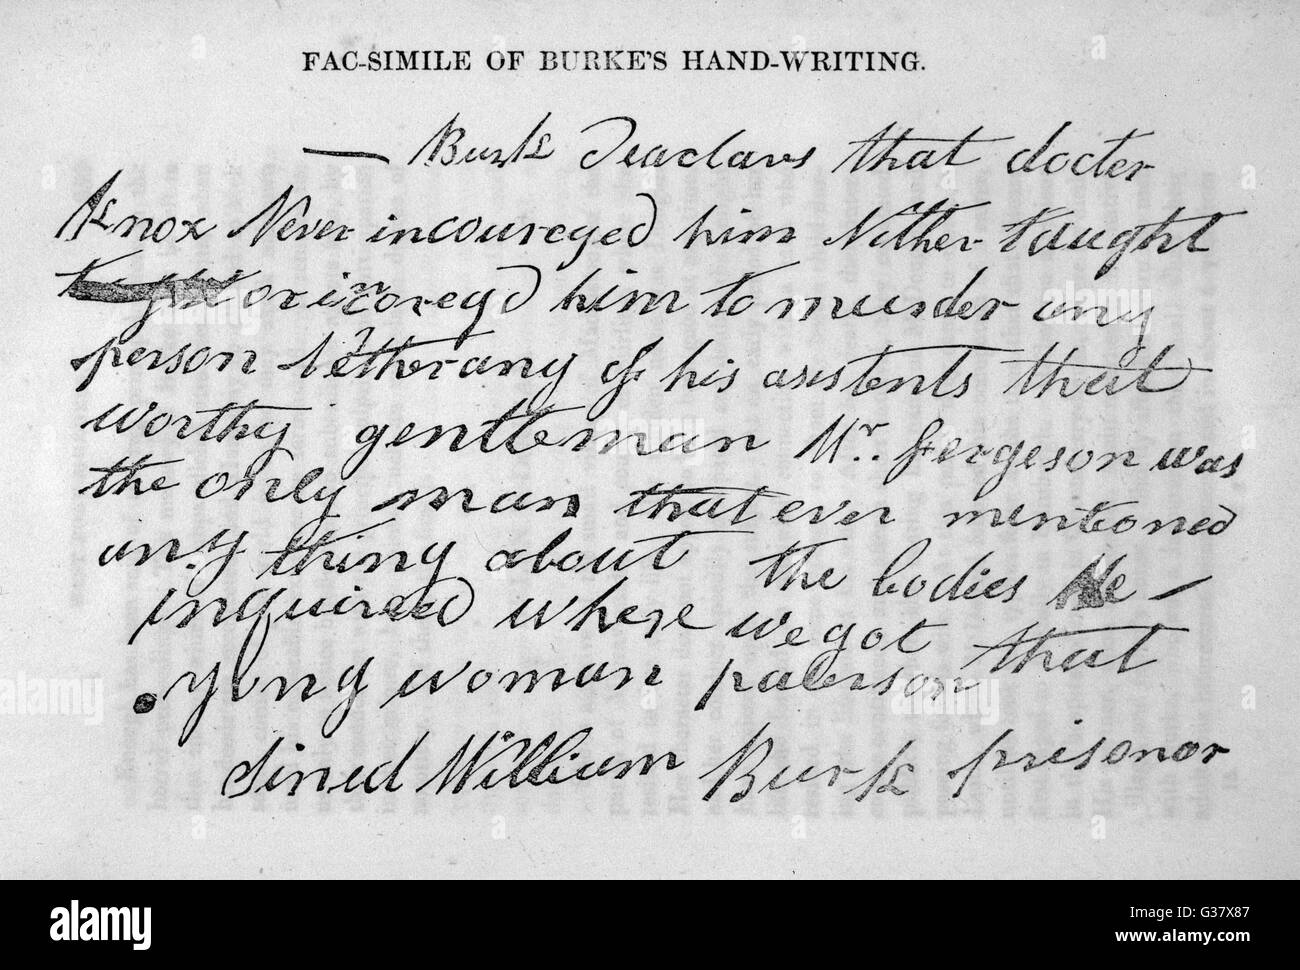 FAC-SIMILE OF BURKE'S HAND-WRITING.
— Burk deaclars that docter
Knox Never incoureged him Nither taught
or incoregd him to murder any
person Nether any of his asistents that
worthy gentleman Mr. Fergeson was
the only man that ever mentioned
any thing about the bodies He —
inquired where we got that
yong woman paterson that
Sined William Burk prisonor
alamy
a
a
Image ID: G37X87
www.alamy.com